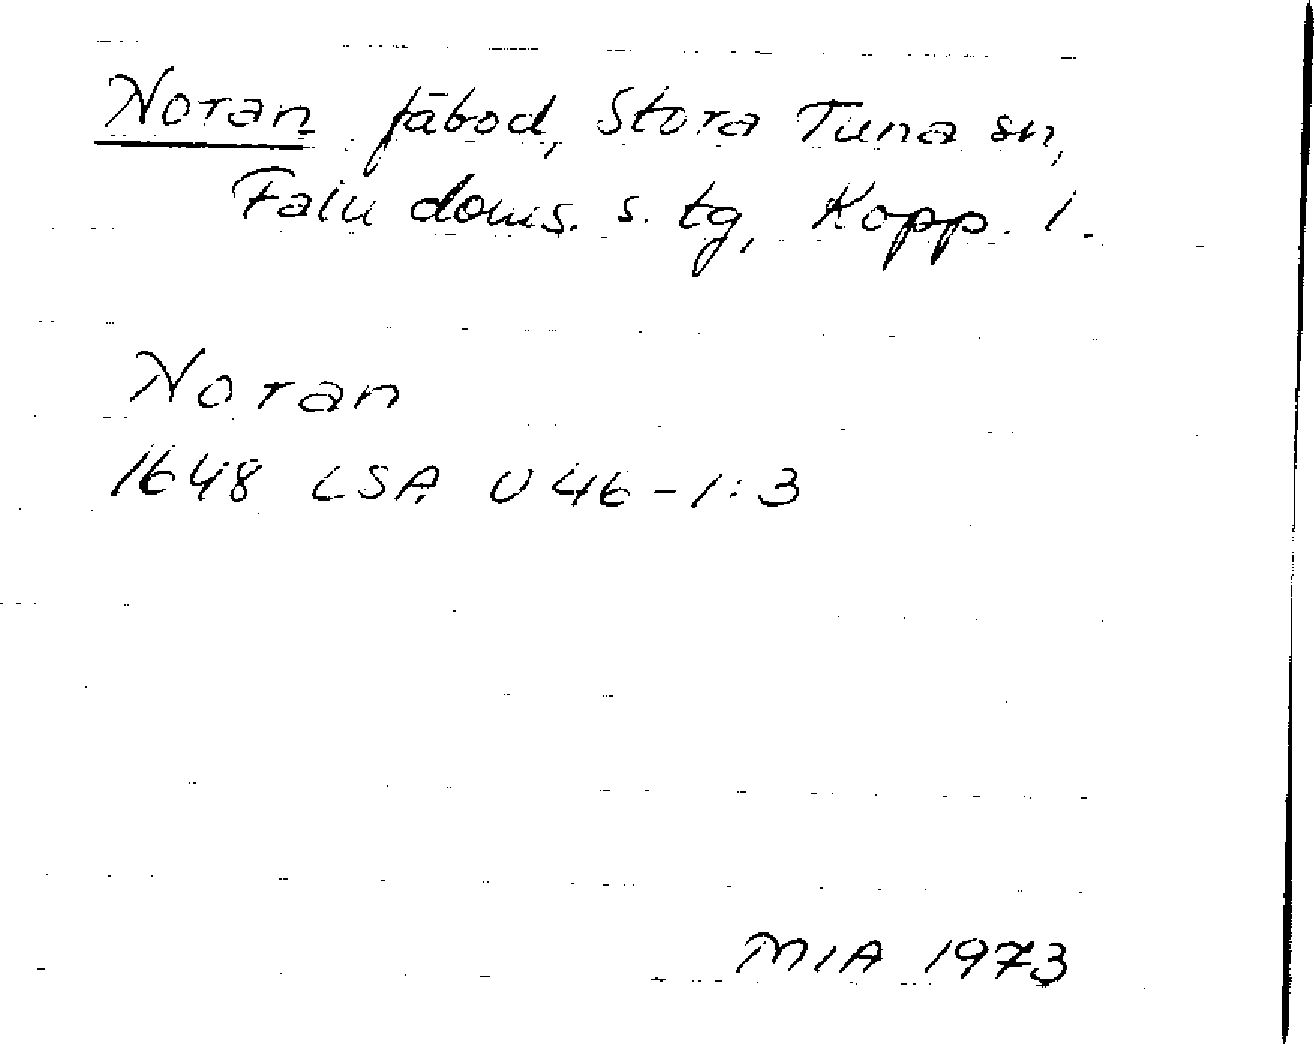 Noran fäbod, Stora Tuna sn,
Falu doms. s. tg, Kopp. l.
Noran
1648 LSA U 46-1:3
MIA 1973